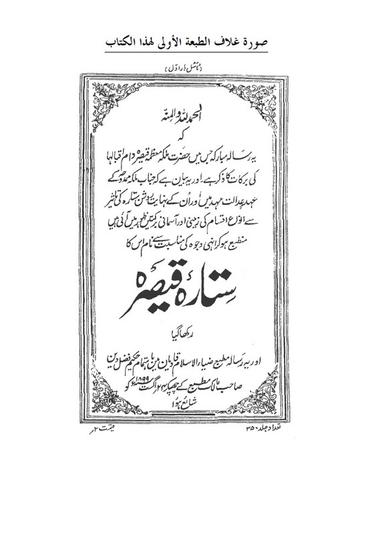 صورة غلاف الطبعة الأولى لهذا الكتاب
(ٹائٹل بار اوّل)
الحمد للہ والمنّہ
کہ
یہ رسالہ مبارکہ جس میں حضرت ملکہ معظمہ قیصرہ دام اقبالہا
کی برکات کا ذکر ہے اور یہ بیان ہے کہ جناب ملکہ ممدوحہ کے
عہد عدالت مہد میں اور اُن کے نہایت روشن ستارہ کی تاثیر
سے انواع اقسام کی زمینی اور آسمانی برکتیں ظہور میں آئی ہیں
مطبع ہو کر انہی وجوہ کی مناسبت سے نام اس کا
ستارہ قیصرہ
رکھا گیا
اور یہ رسالہ مطبع ضیاء الاسلام قادیان میں باہتمام حکیم فضل دین
صاحب مالک مطبع کے چھپکر ۲۴ اگست ۱۸۹۹ء کو
شائع ہوا
تعداد جلد ۳۵۰
قیمت ۲ر